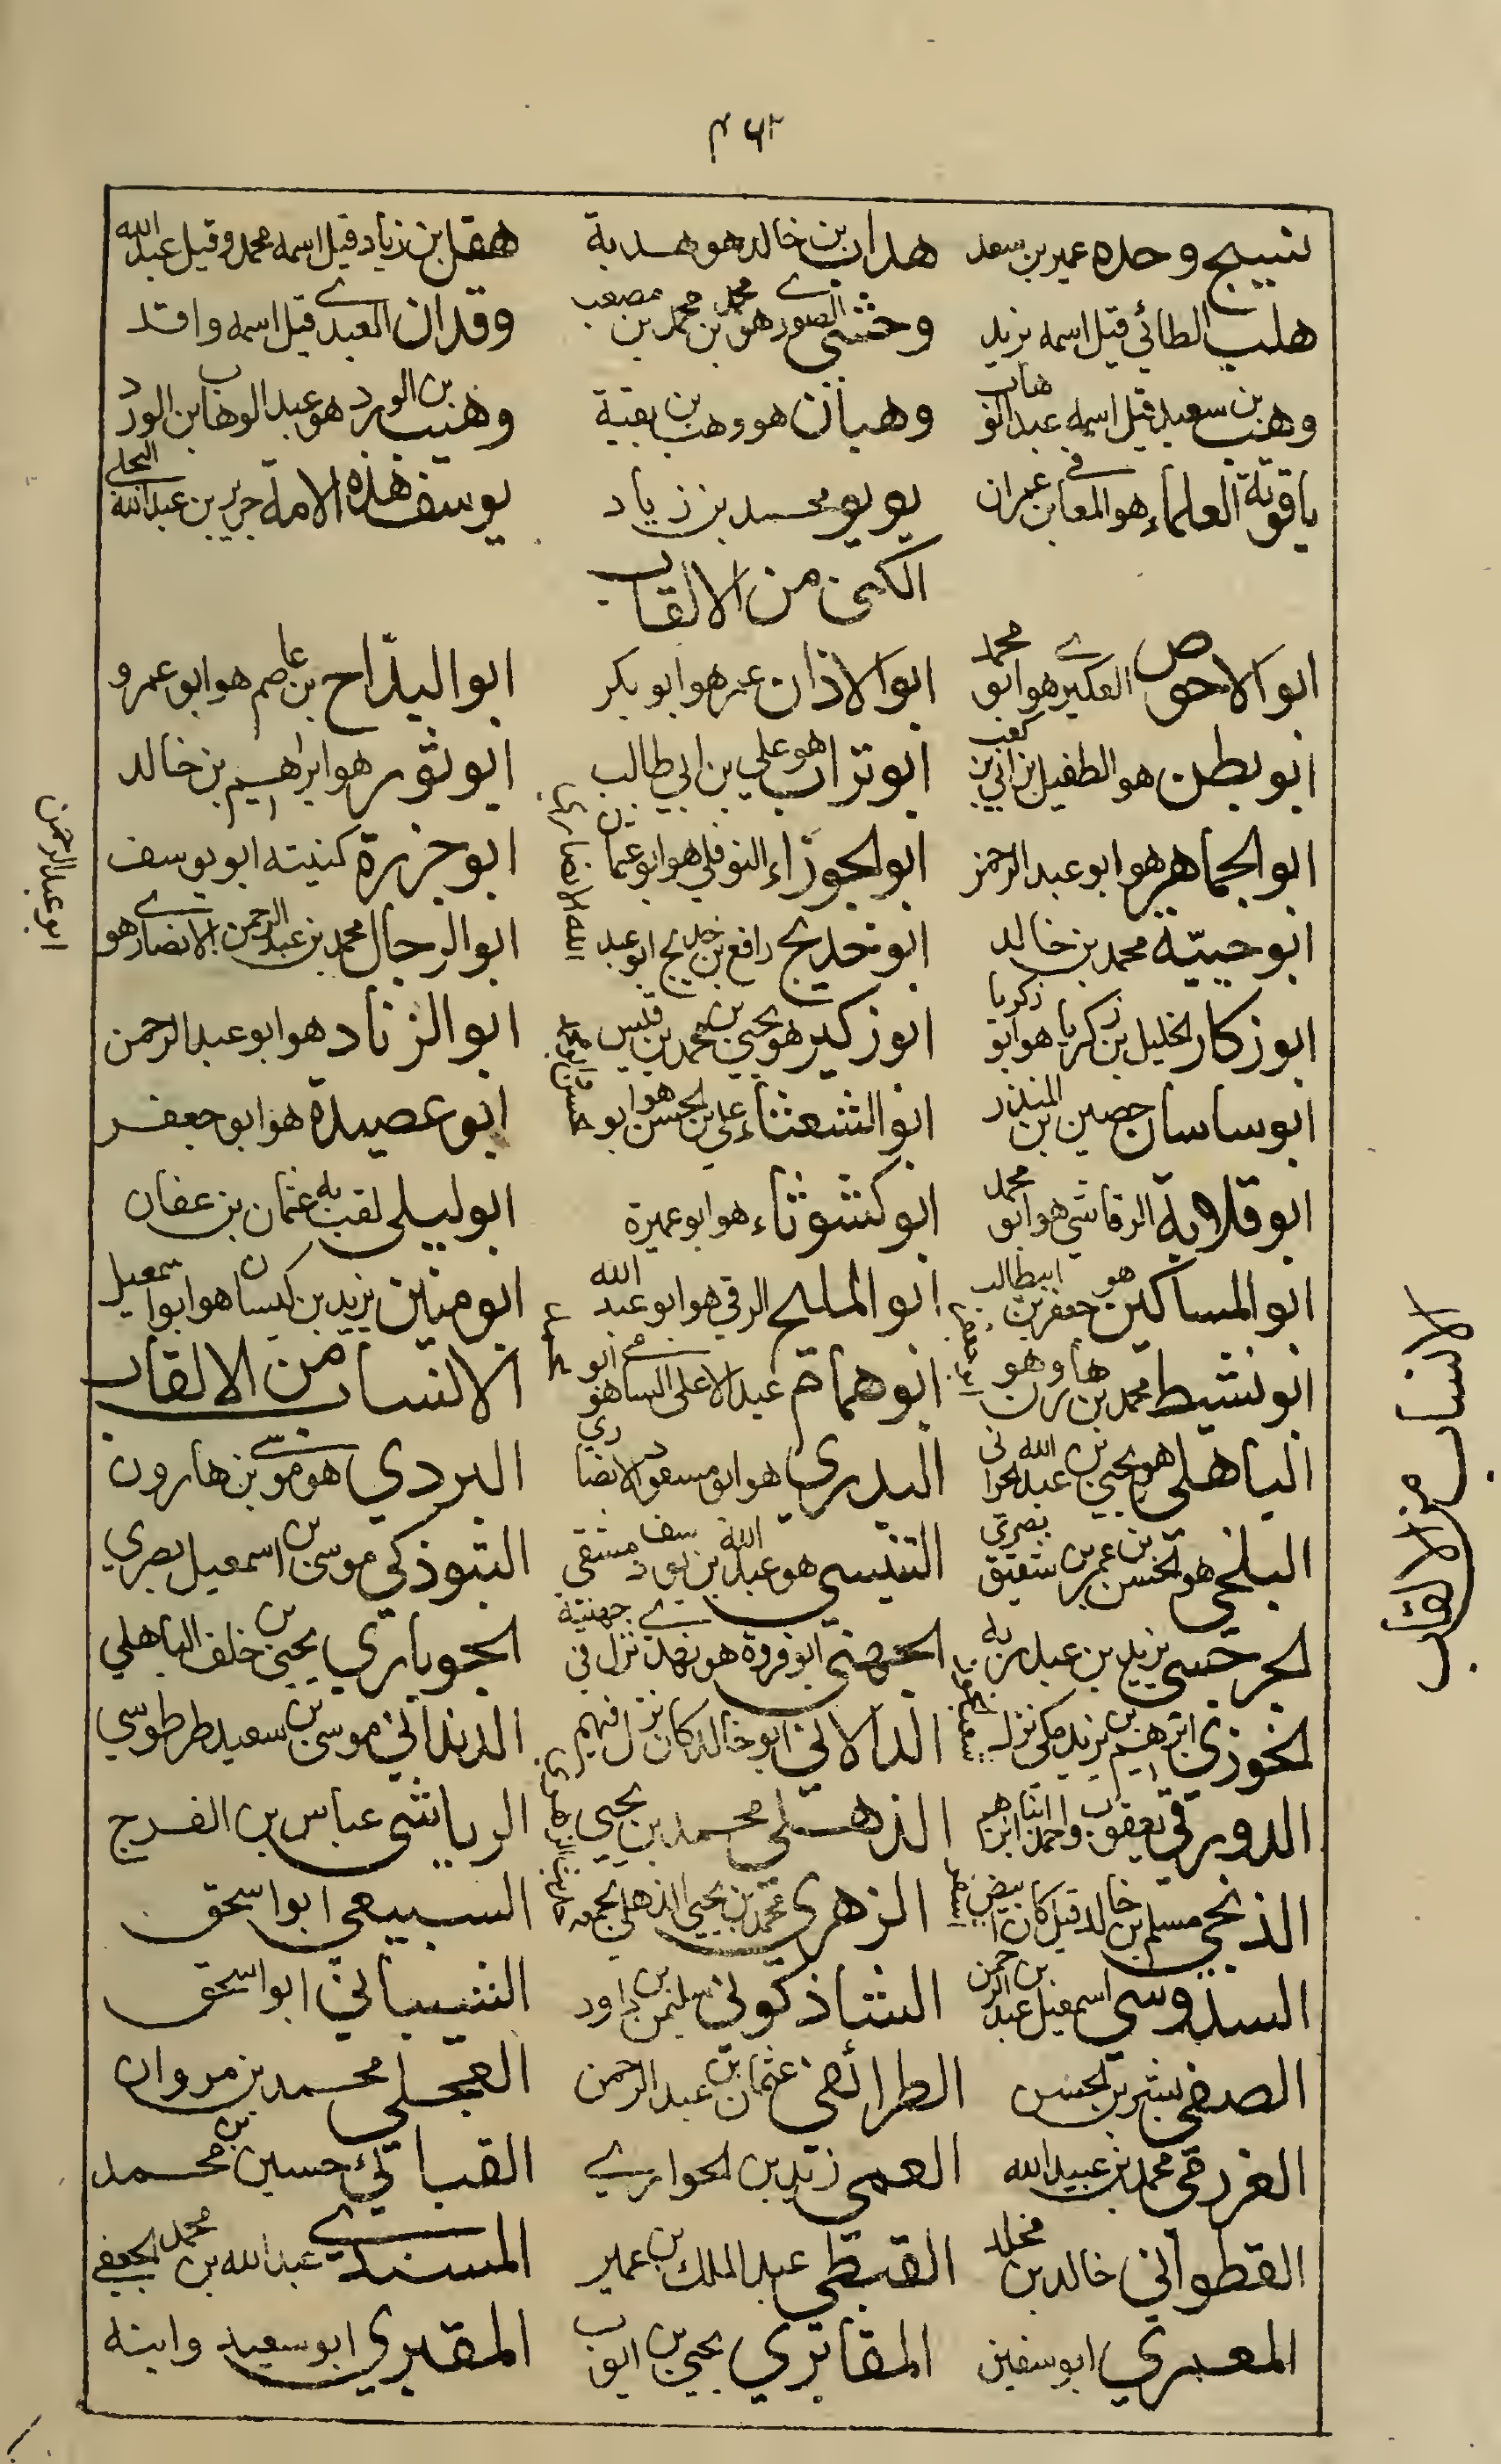 ٤٦٢
نسيج وحده عمير بن سعد هداب بن خالد هو هدبة هقل بن زياد قيل اسمه محمد وقيل عبد الله
هلب الطائي قيل اسمه يزيد وحشي الصوري هو محمد بن محمد بن مصعب وقدان العبدي قيل اسمه واقد
وهب بن سعيد قيل اسمه عبد الوهاب وهبان هو وهب بن بقية وهيب بن الورد هو عبد الوهاب بن الورد
ياقوتة العلماء هو المعافى بن عمران يويو محمد بن زياد يوسف هذه الامة جرير بن عبد الله البجلي
الكنى من الالقاب
ابو الاحوص العكبري هو ابو محمد ابو الاذان عمر هو ابو بكر ابو البداح بن عاصم هو ابو عمرو
ابو بطن هو الطفيل بن ابي بن كعب ابو تراب هو علي بن ابي طالب ابو ثور هو ابراهيم بن خالد
ابو الجماهير هو ابو عبد الرحمن ابو الجوزاء النوفلي هو ابو عثمان ابو حزرة كنيته ابو يوسف
ابو حبيّة محمد بن خالد ابو خديج رافع بن خديج ابو عبد الله الانصاري ابو الرجال محمد بن عبد الرحمن الانصاري هو ابو عبد الرحمن
ابو زكار الخليل بن زكريا هو ابو زكريا ابو زكير هو يحيى بن محمد بن قيس ابو محمد ابو الزناد هو ابو عبد الرحمن
ابو ساسان حصين بن المنذر ابو الشعثاء علي بن الحسن هو ابو الحسن ابو عصيدة هو ابو جعفر
ابو قلابة الرقاشي هو ابو محمد ابو كشوثاء هو ابو عميرة ابو ليلى لقب به عثمان بن عفان
ابو المساكين هو جعفر بن ابيطالب ابو المليح الرقي هو ابو عبد الله ابو منين يزيد بن كيسان هو ابو اسمعيل
ابو نشيط محمد بن هارون وهو ابو همام عبد الاعلى السامي هو ابو محمد الانساب من الالقاب
الباهلي هو يحيى بن عبد الله الحراني البدري هو ابو مسعود الانصاري البردي هو موسى بن هارون
البلخي هو الحسن بن عمر بن شقيق بصري التنيسي هو عبد الله بن يوسف دمشقي التبوذكي موسى بن اسمعيل بصري
الجرجسي يزيد بن عبد ربه الجهني ابو فروة هو نهدي نزل في جهينة الجوباري يحيى بن خلف الباهلي
الخوزي ابرهيم بن يزيد مكي نزل الدالاني ابو خالد كان نزل فيهم الدنداني موسى بن سعيد طرطوسي
الدورقي يعقوب واحمد ابنا ابراهيم الذهلي محمد بن يحيى الرياشي عباس بن الفرج
الزنجي مسلم بن خالد قيل كان ابيض الزهري محمد بن يحيى الذهلي لجمعه حديث الزهري السبيعي ابو اسحق
السدوسي اسمعيل بن عبد الرحمن الشاذكوني سليمن بن داود الشيباني ابو اسحق
الصدفي بشر بن الحسن الطرائفي عثمان بن عبد الرحمن العجلي محمد بن مروان
العرزمي محمد بن عبيد الله العمي زيد بن الحواري القباني حسين بن محمد
القطواني خالد بن مخلد القبطي عبد الملك بن عمير المسندي عبد الله بن محمد الجعفي
المعمري ابو سفين المقابري يحيى بن ايوب المقبري ابو سعيد وابنه
الانساب من الالقاب